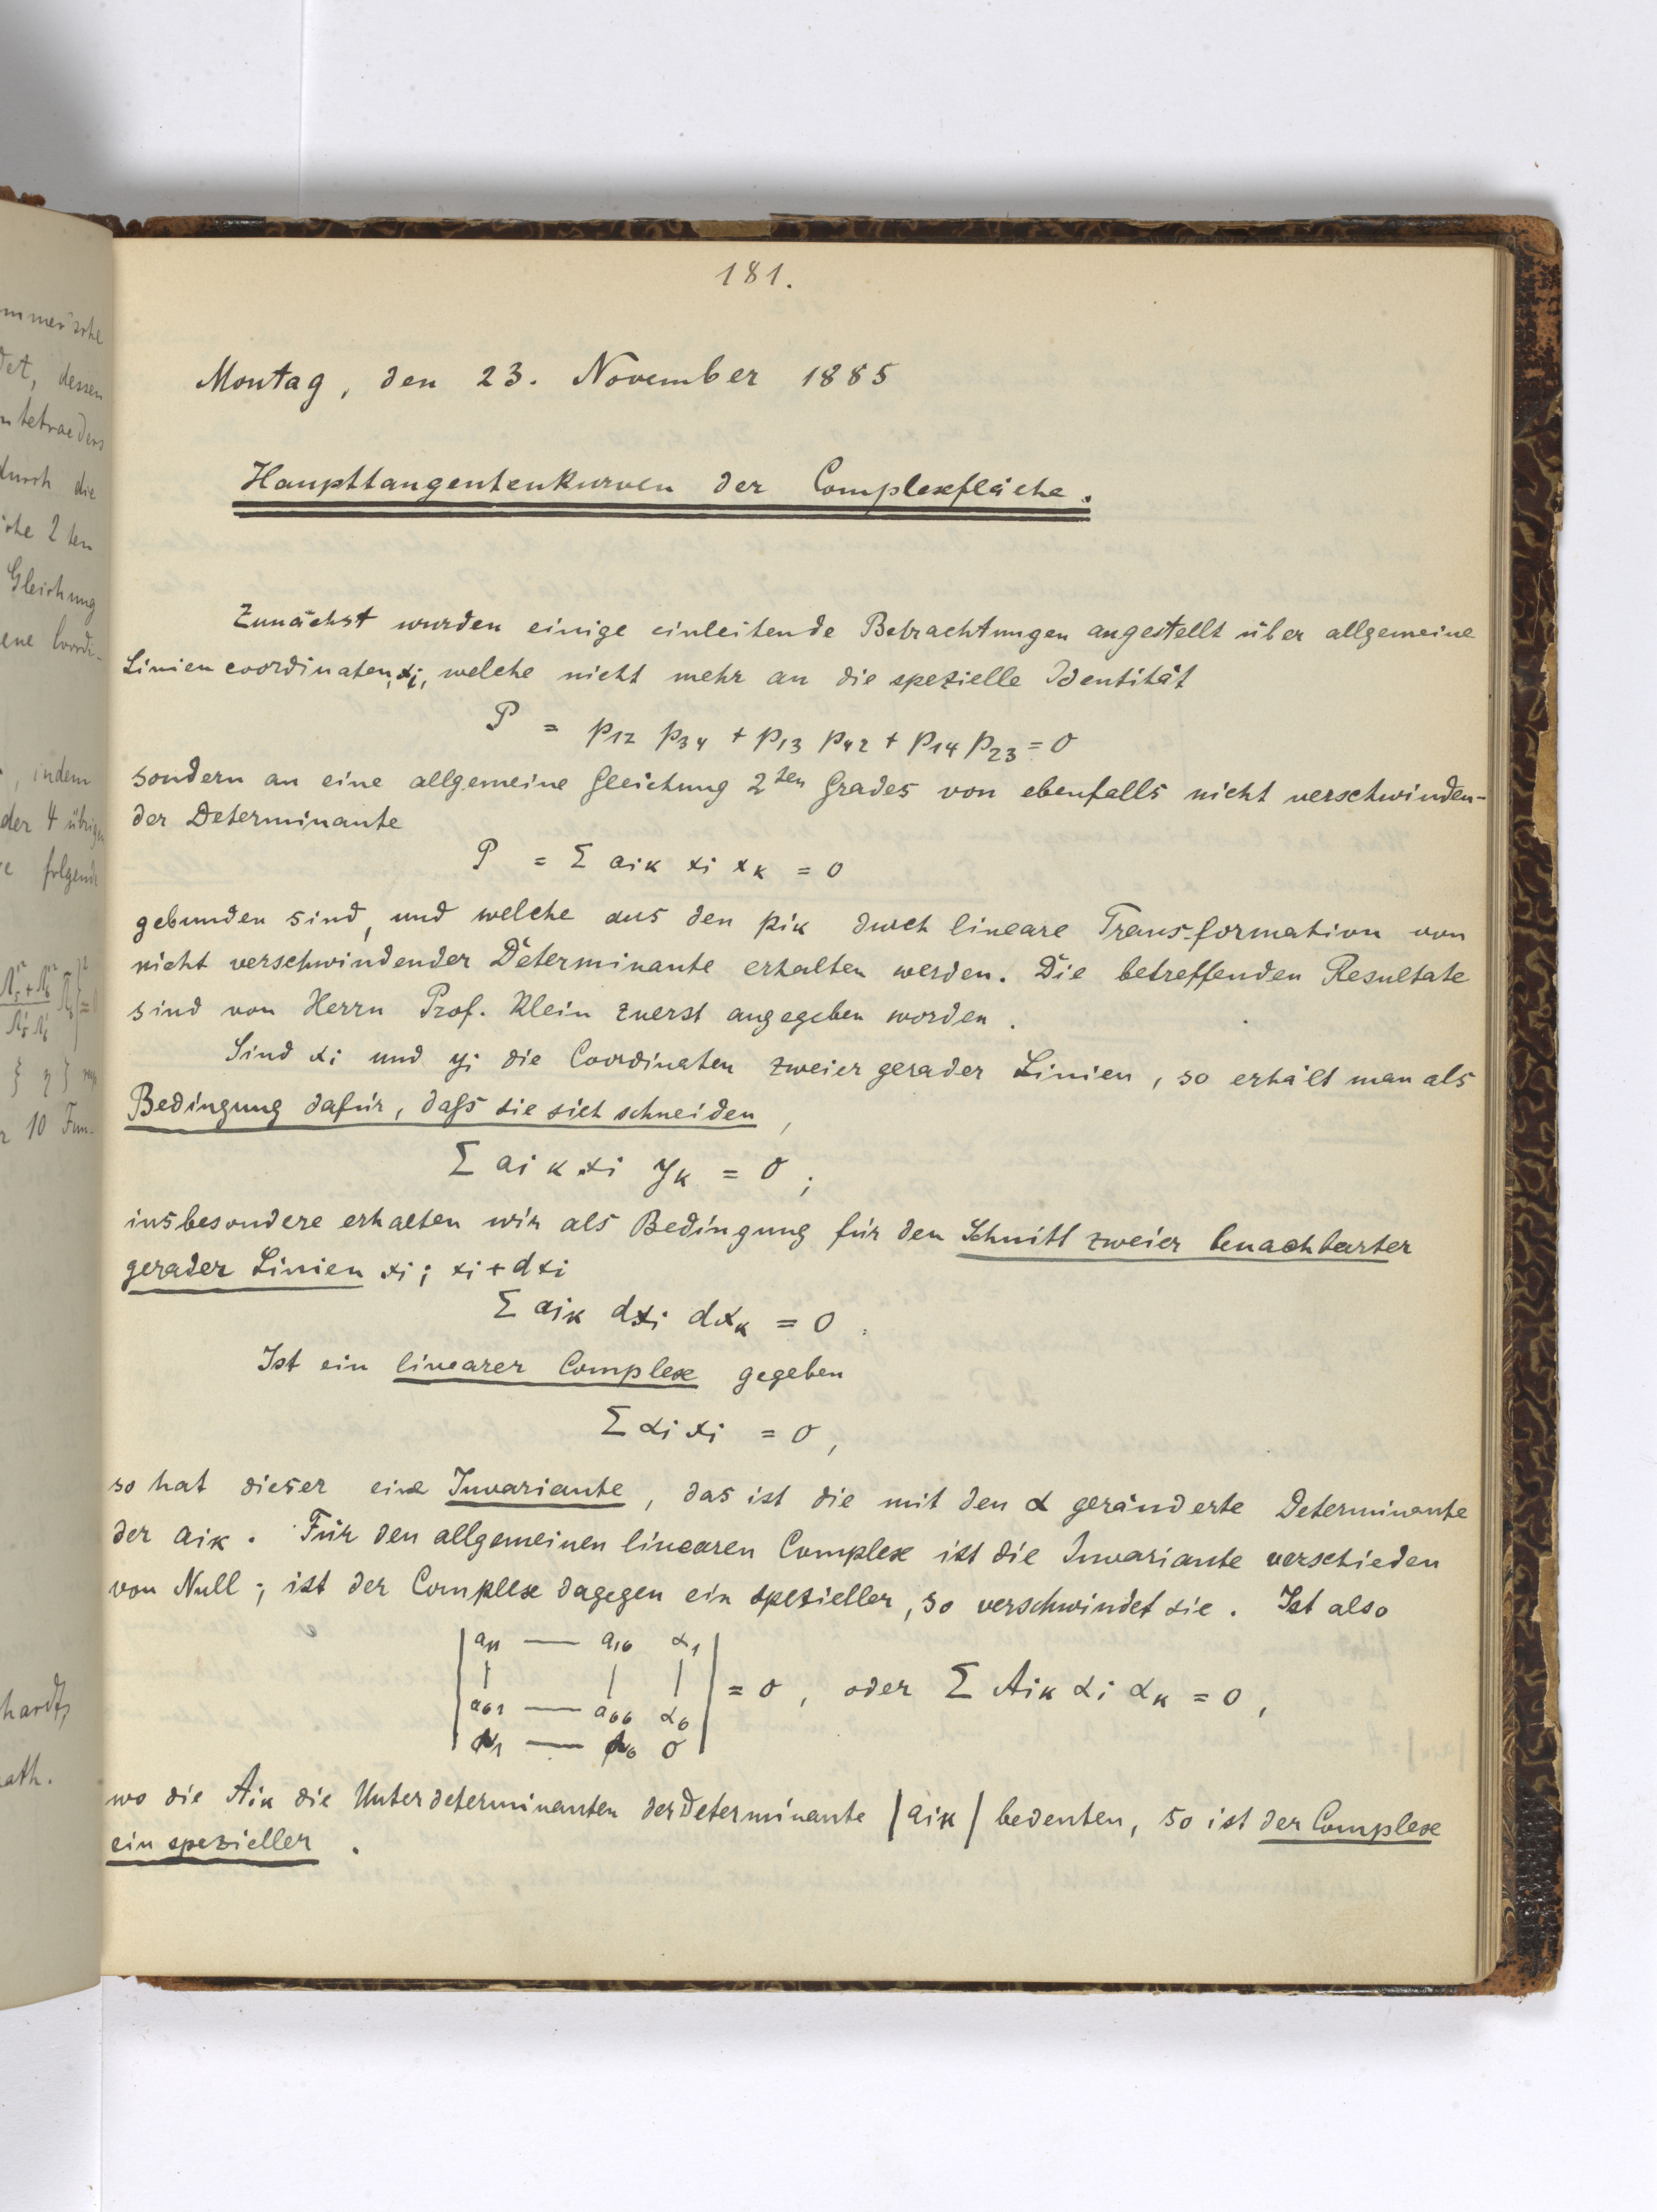 181.
Montag, den 23. November 1885
Haupttangentenkurven der Complexfläche.
Zunächst wurden einige einleitende Betrachtungen angestellt über allgemeine
Liniencoordinaten, xi, welche nicht mehr an die spezielle Identität
P = p12 p34 + p13 p42 + p14 p23 = 0
sondern an eine allgemeine Gleichung 2ten Grades von ebenfalls nicht verschwinden-
der Determinante
P = Σ aik xi xk = 0
gebunden sind, und welche aus den pik durch lineare Transformation von
nicht verschwindender Determinante erhalten werden. Die betreffenden Resultate
sind von Herrn Prof. Klein zuerst angegeben worden.
Sind xi und yi die Coordinaten zweier gerader Linien, so erhält man als
Bedingung dafür, daſs sie sich schneiden,
Σ aik xi yk = 0;
insbesondere erhalten wir als Bedingung für den Schnitt zweier benachbarter
gerader Linien xi; xi + dxi
Σ aik dxi dxk = 0.
Ist ein linearer Complex gegeben
Σ αi xi = 0,
so hat dieser eine Invariante, das ist die mit den α geränderte Determinante
der aik. Für den allgemeinen linearen Complex ist die Invariante verschieden
von Null; ist der Complex dagegen ein spezieller, so verschwindet sie. Ist also
| a11 — a16 α1 |
| | | | |
| a61 — a66 α6 | = 0, oder Σ Aik αi αk = 0,
| α1 — α6 0 |
wo die Aik die Unterdeterminanten der Determinante |aik| bedeuten, so ist der Complex
ein spezieller.
mmer'sche
det, dessen
ntetraeders
durch die
che 2ten
Gleichung
ene Coordi-
, indem
der 4 übrigen
folgende
10 Fun-
hardt,
ath.